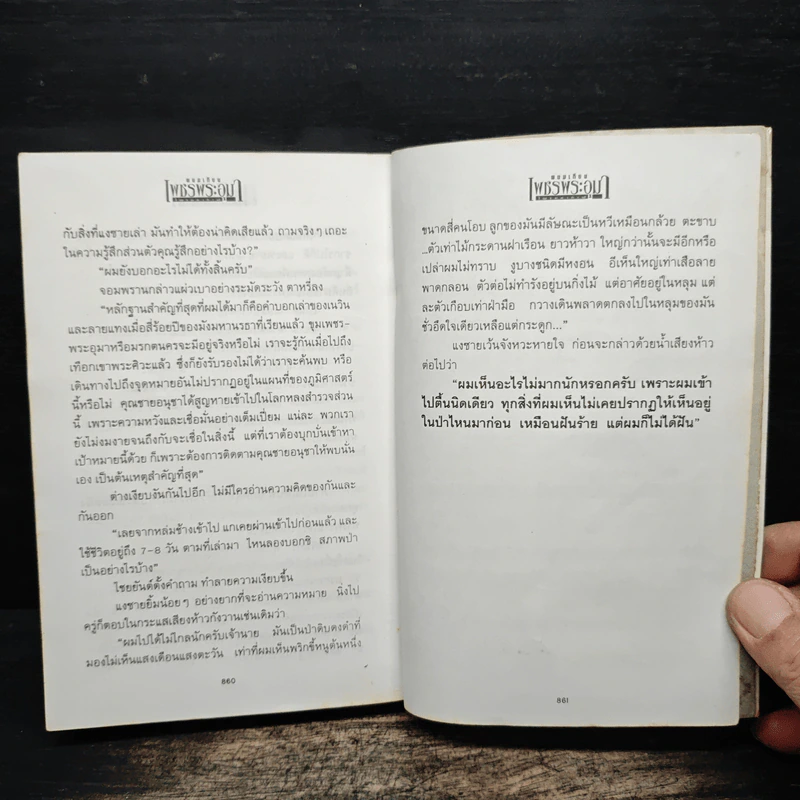 พนมเทียน
เพชรพระอุมา
กับสิ่งที่แงซายเล่า มันทำให้ต้องน่าคิดเสียแล้ว ถามจริงๆ เถอะ
ในความรู้สึกส่วนตัวคุณรู้สึกอย่างไรบ้าง?"
"ผมยังบอกอะไรไม่ได้ทั้งสิ้นครับ"
จอมพรานกล่าวแผ่วเบาอย่างระมัดระวัง ตาหรี่ลง
"หลักฐานสำคัญที่สุดที่ผมได้มาก็คือคำบอกเล่าของเนวิน
และลายแทงเมื่อสี่ร้อยปีของมังมหานรธาที่เรียนแล้ว ขุมเพชร-
พระอุมาหรือมรกตนครจะมีอยู่จริงหรือไม่ เราจะรู้กันเมื่อไปถึง
เทือกเขาพระศิวะแล้ว ซึ่งก็ยังรับรองไม่ได้ว่าเราจะค้นพบ หรือ
เดินทางไปถึงจุดหมายอันไม่ปรากฏอยู่ในแผนที่ของภูมิศาสตร์
นี้หรือไม่ คุณชายอนุชาได้สูญหายเข้าไปในโลกหลงสำรวจส่วน
นี้ เพราะความหวังและเชื่อมั่นอย่างเต็มเปี่ยม แน่ละ พวกเรา
ยังไม่งมงายจนถึงกับจะเชื่อในสิ่งนี้ แต่ที่เราต้องบุกบั่นเข้าหา
เป้าหมายนี้ด้วย ก็เพราะต้องการติดตามคุณชายอนุชาให้พบนั่น
เอง เป็นต้นเหตุสำคัญที่สุด"
ต่างเงียบงันกันไปอีก ไม่มีใครอ่านความคิดของกันและ
กันออก
"เลยจากหล่มช้างเข้าไป แกเคยผ่านเข้าไปก่อนแล้ว และ
ใช้ชีวิตอยู่ถึง 7-8 วัน ตามที่เล่ามา ไหนลองบอกซิ สภาพป่า
เป็นอย่างไรบ้าง"
ไชยยันต์ตั้งคำถาม ทำลายความเงียบขึ้น
แงซายยิ้มน้อยๆ อย่างยากที่จะอ่านความหมาย นิ่งไป
ครู่ก็ตอบในกระแสเสียงห้าวกังวานเช่นเดิมว่า
"ผมไปได้ไม่ไกลนักครับเจ้านาย มันเป็นป่าดิบดงดำที่
มองไม่เห็นแสงเดือนแสงตะวัน เท่าที่ผมเห็นพริกขี้หนูต้นหนึ่ง
860
พนมเทียน
เพชรพระอุมา
ขนาดสี่คนโอบ ลูกของมันมีลัษณะเป็นหวีเหมือนกล้วย ตะขาบ
...ตัวเท่าไม้กระดานฝาเรือน ยาวห้าวา ใหญ่กว่านั้นจะมีอีกหรือ
เปล่าผมไม่ทราบ งูบางชนิดมีหงอน อีเห็นใหญ่เท่าเสือลาย
พาดกลอน ตัวต่อไม่ทำรังอยู่บนกิ่งไม้ แต่อาศัยอยู่ในหลุม แต่
ละตัวเกือบเท่าฝ่ามือ กวางเดินพลาดตกลงไปในหลุมของมัน
ชั่วอึดใจเดียวเหลือแต่กระดูก..."
แงซายเว้นจังหวะหายใจ ก่อนจะกล่าวด้วยน้ำเสียงห้าว
ต่อไปว่า
"ผมเห็นอะไรไม่มากนักหรอกครับ เพราะผมเข้า
ไปตื้นนิดเดียว ทุกสิ่งที่ผมเห็นไม่เคยปรากฏให้เห็นอยู่
ในป่าไหนมาก่อน เหมือนฝันร้าย แต่ผมก็ไม่ได้ฝัน"
861